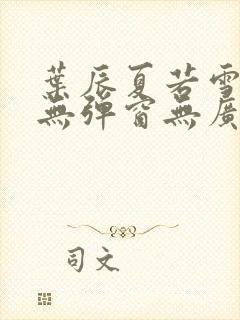 葉辰夏若雪
無彈窗無廣
司文